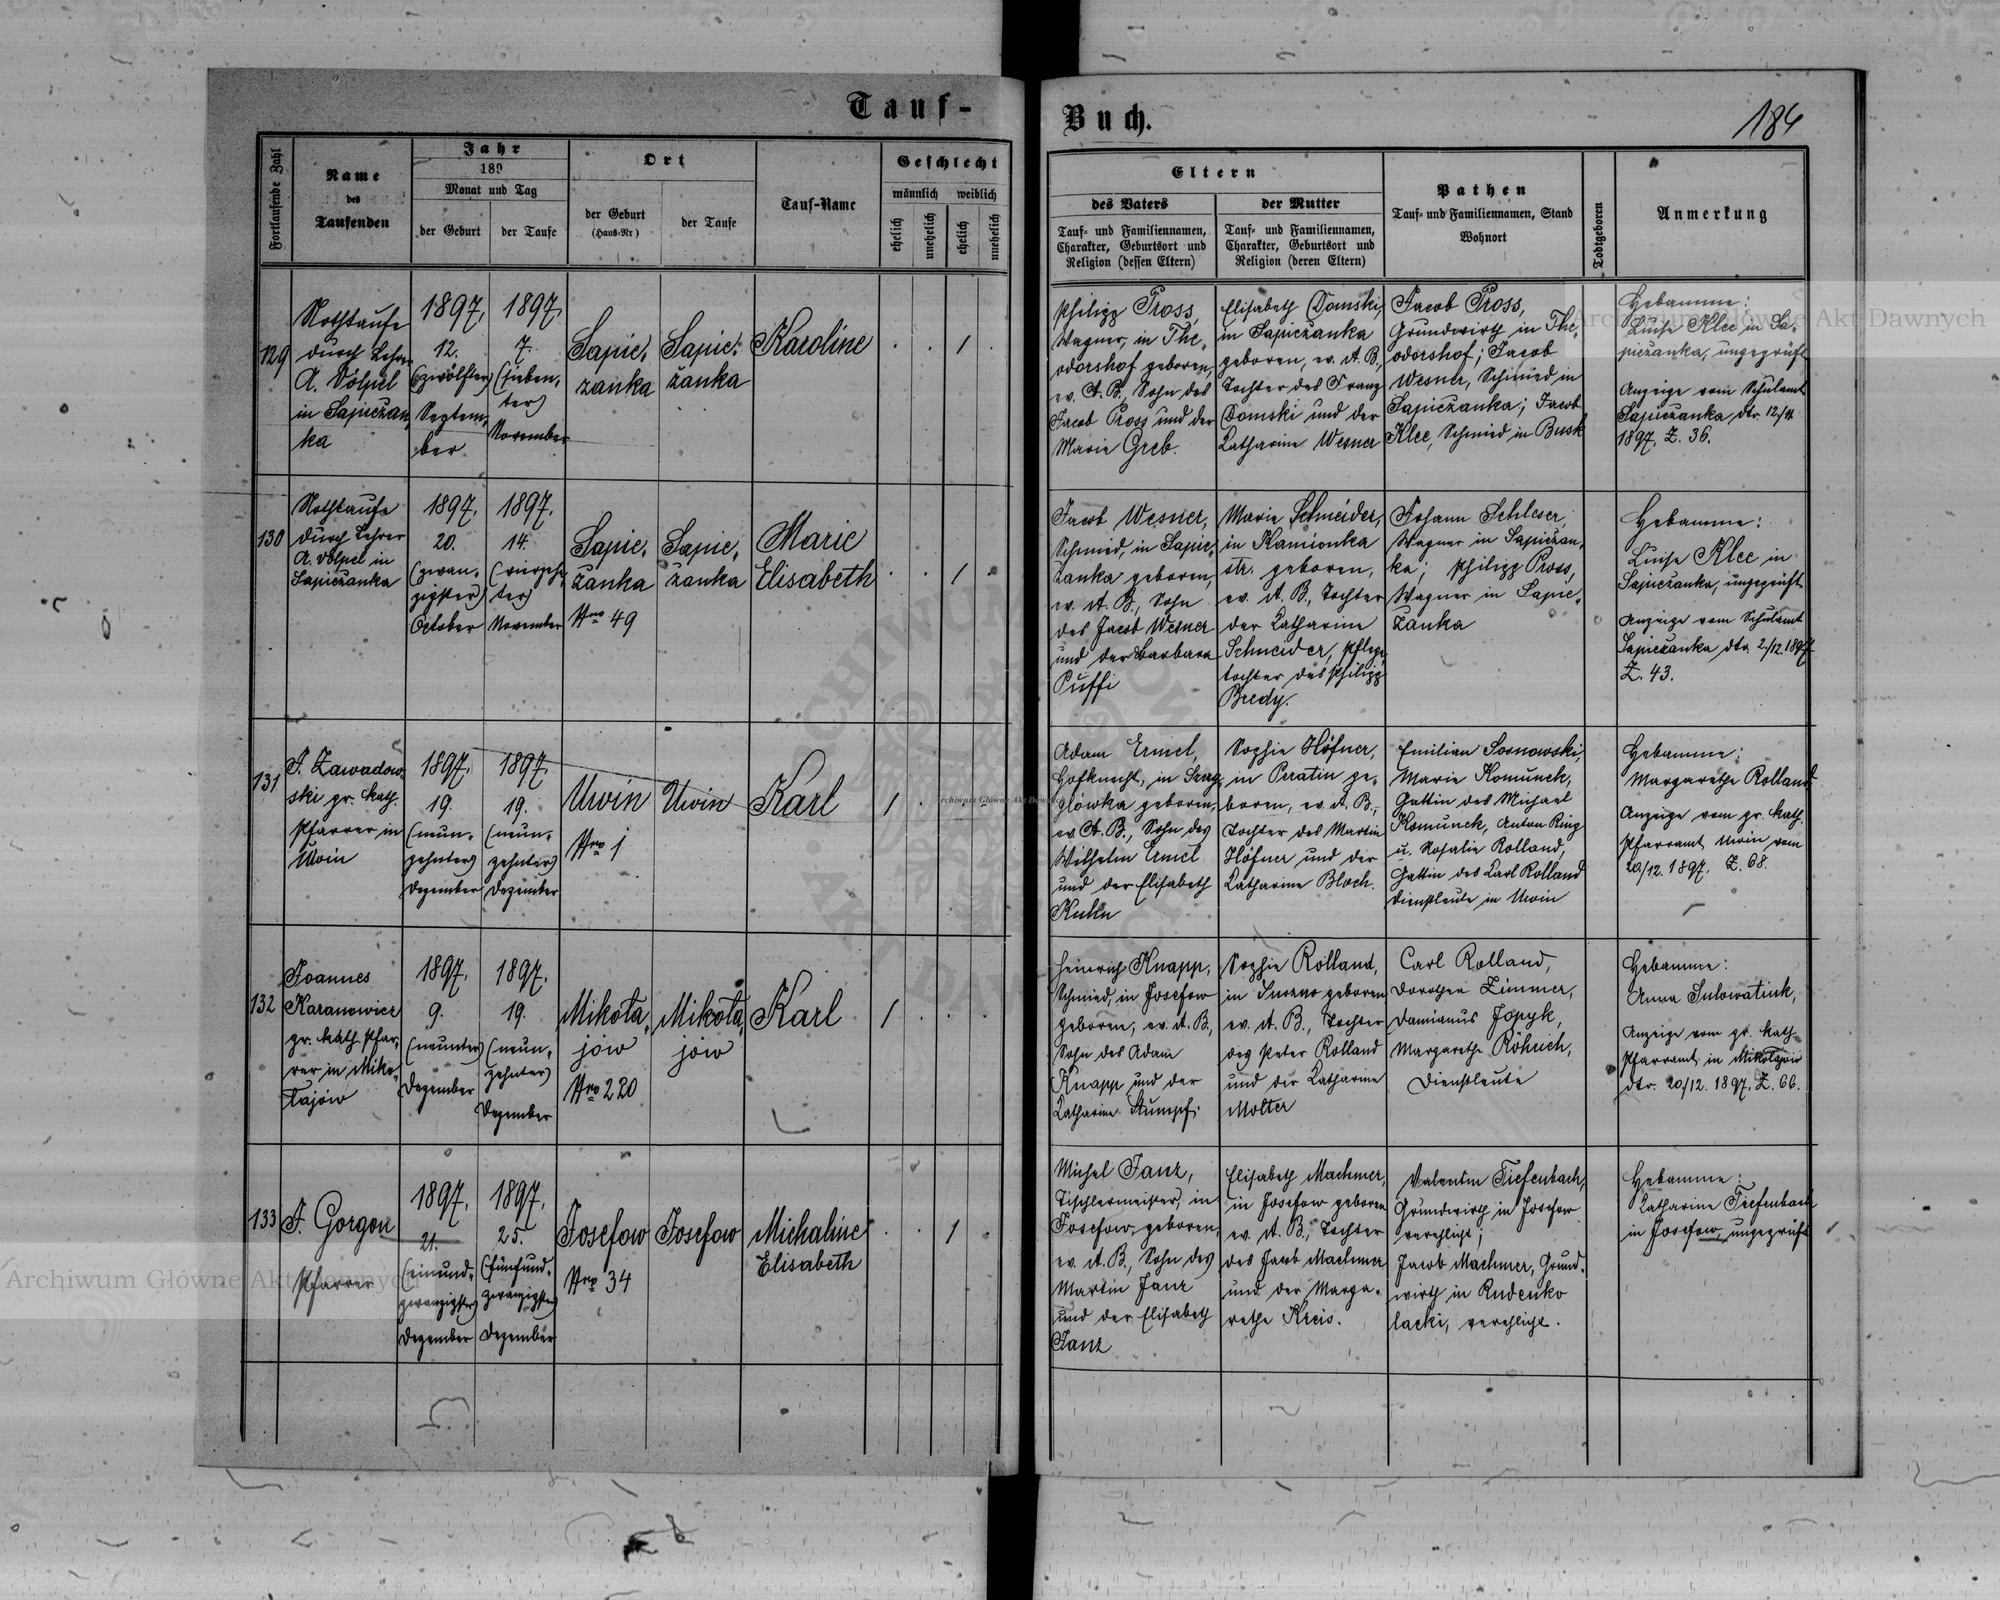 Tauf-
Buch.
184
Fortlaufende Zahl
Name
des
Taufenden
Jahr
189
Monat und Tag
der Geburt
der Taufe
Ort
der Geburt
(Haus-Nr)
der Taufe
Tauf-Name
Geschlecht
männlich weiblich
ehelich
unehelich
ehelich
unehelich
Eltern
des Vaters
Tauf- und Familiennamen,
Charakter, Geburtsort und
Religion (dessen Eltern)
der Mutter
Tauf- und Familiennamen,
Charakter, Geburtsort und
Religion (deren Eltern)
Pathen
Tauf- und Familiennamen, Stand
Wohnort
Todtgeboren
Anmerkung
129
Nothtaufe
durch Lehrer
A. Völpel
in Sapiezan,
ka
1897,
12.
(zwölfter)
Septem,
ber
1897,
7.
(sieben,
ter)
November
Sapie,
zanka
Sapie,
żanka
Karoline
1
Philipp Pross,
Wagner, in The,
odorshof geboren,
ev. A. B., Sohn des
Jacob Pross und der
Marie Greb.
Elisabeth Domski,
in Sapieżanka
geboren, ev. A. B.,
Tochter des Franz
Domski und der
Katharine Wesner
Jacob Pross,
Grundwirth in The,
odorshof; Jacob
Wesner, Schmied in
Sapieżanka; Jacob
Klee, Schmied in Busk
Hebamme:
Luise Klee in Sa,
pieżanka, ungeprüft
Anzeige vom Schulamt
Sapieżanka dto. 12/11
1897, Z. 36.
130
Nothtaufe
durch Lehrer
A. Völpel in
Sapieżanka
1897.
20.
(zwan,
zigster)
October
1897.
14.
(vierzehn,
ter)
November
Sapie,
żanka
Nro 49
Sapie,
żanka
Marie
Elisabeth
1
Jacob Wesner,
Schmied, in Sapie,
żanka geboren,
ev. A. B., Sohn
des Jacob Wesner
und der Barbara
Puffi
Marie Schneider,
in Kamionka
str. geboren,
ev. A. B., Tochter
der Katharine
Schneider, Pflege,
tochter des Philipp
Bredy.
Johann Schleser,
Wagner in Sapieżan,
ka; Philipp Pross,
Wagner in Sapie,
żanka
Hebamme:
Luise Klee in
Sapieżanka, ungeprüft
Anzeige vom Schulamt
Sapieżanka dto. 2/12.1897
Z. 43.
131
J. Zawadow,
ski gr. kath.
Pfarrer in
Uwin
1897.
19.
(neun,
zehnter)
Dezember
1897.
19.
(neun,
zehnter)
Dezember
Uwin
Nro 1
Uwin
Karl
1
Adam Ermel,
Hofknecht, in
główka geboren,
ev. A. B., Sohn des
Wilhelm Ermel
und der Elisabeth
Kuhn
Sophie Höfner,
in Peratin ge,
boren, ev. A. B.,
Tochter des Martin
Höfner und der
Katharine Bloch.
Emilian Sosnowski,
Marie Komunek,
Gattin des Michael
Komunek, Anton Ring
u. Rosalie Rolland,
Gattin des Karl Rolland
Dienstleute in Uwin
Hebamme:
Margarethe Rolland
Anzeige vom gr. kath.
Pfarramt Uwin vom
20/12. 1897. Z. 68.
132
Joannes
Karanowicz
gr. kath. Pfar,
rer in Miko,
łajow
1897.
9.
(neunter)
Dezember
1897.
19.
(neun,
zehnter)
Dezember
Mikoła,
jów
Nro 220
Mikoła,
jów
Karl
1
Heinrich Knapp,
Schmied, in Josefow
geboren, ev. A. B.,
Sohn des Adam
Knapp und der
Katharine Stumpf.
Sophie Rolland,
in geboren
ev. A. B., Tochter
des Peter Rolland
und der Katharine
Molter
Carl Rolland,
Dorothea Zimmer,
Damianus Jopyk,
Margarethe Röhrich,
Dienstleute
Hebamme:
Anna Sulowatiuk,
Anzeige vom gr. kath.
Pfarramt in Mikołajow
dto. 20/12. 1897, Z. 66.
133
J. Gorgon
Pfarrer
1897.
21.
(einund,
zwanzigster)
Dezember
1897.
25.
(fünfund,
zwanzigster)
Dezember
Josefow
Nro 34
Josefow
Michaline
Elisabeth
1
Michel Janz,
Tischlermeister, in
Josefow geboren,
ev. A. B., Sohn des
Martin Janz
und der Elisabeth
Janz
Elisabeth Machmer,
in Josefow geboren
ev. A. B., Tochter
des Jacob Machmer
und der Marga,
rethe Kreis.
Valentin Tiefenbach,
Grundwirth in Josefow
verehlicht;
Jacob Machmer, Grund,
wirth in Rudenko
lacki, verehlicht.
Hebamme:
Katharine Tiefenbach
in Josefow, ungeprüft
Archiwum Główne Akt Dawnych
Archiwum Główne Akt Dawnych
Archiwum Główne Akt Dawnych